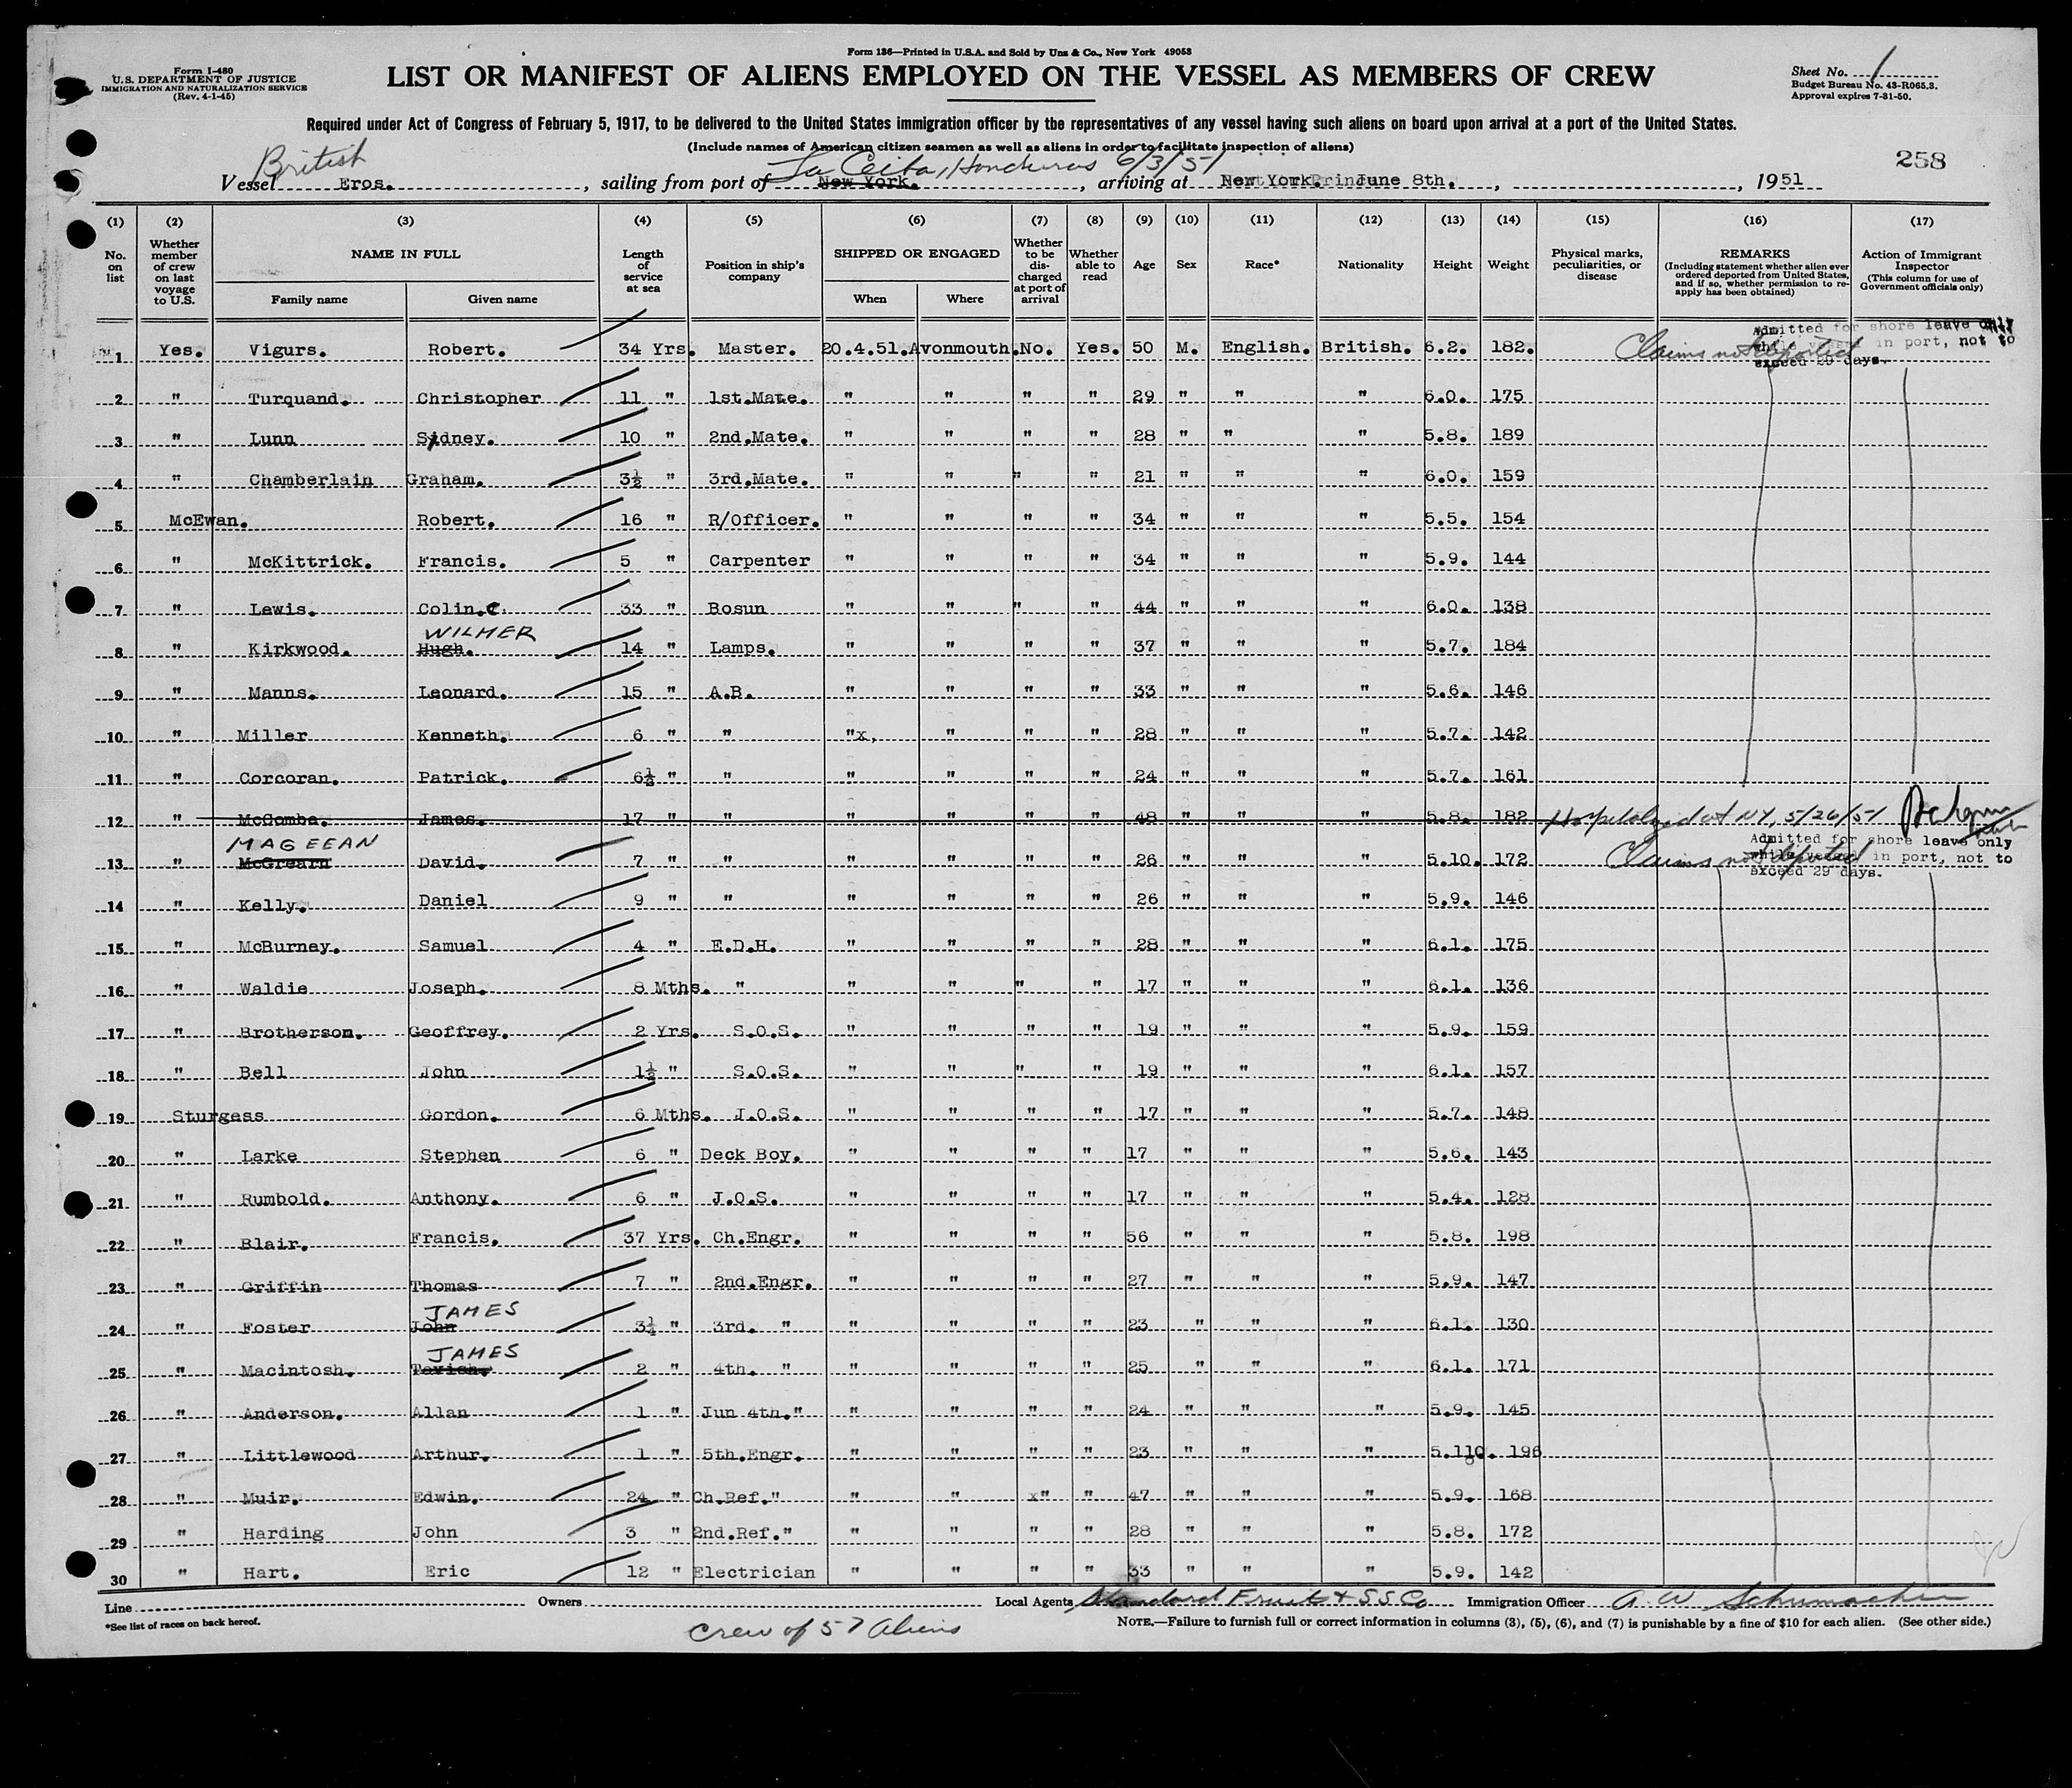 Form 136—Printed in U.S.A. and Sold by Unz & Co., New York 49053
Form I-480
U.S. DEPARTMENT OF JUSTICE
IMMIGRATION AND NATURALIZATION SERVICE
(Rev. 4-1-45)
LIST OR MANIFEST OF ALIENS EMPLOYED ON THE VESSEL AS MEMBERS OF CREW
Sheet No. 1
Budget Bureau No. 43-R065.3.
Approval expires 7-31-50.
Required under Act of Congress of February 5, 1917, to be delivered to the United States immigration officer by the representatives of any vessel having such aliens on board upon arrival at a port of the United States.
(Include names of American citizen seamen as well as aliens in order to facilitate inspection of aliens)
258
British La Ceiba, Honduras 6/3/51
Vessel Eros. , sailing from port of New York. , arriving at New York. June 8th. , , 1951
(1) (2) (3) (4) (5) (6) (7) (8) (9) (10) (11) (12) (13) (14) (15) (16) (17)
No. on list
Whether member of crew on last voyage to U.S.
NAME IN FULL
Family name
Given name
Length of service at sea
Position in ship's company
SHIPPED OR ENGAGED
When
Where
Whether to be discharged at port of arrival
Whether able to read
Age
Sex
Race*
Nationality
Height
Weight
Physical marks, peculiarities, or disease
REMARKS
(Including statement whether alien ever ordered deported from United States, and if so, whether permission to re-apply has been obtained)
Action of Immigrant Inspector
(This column for use of Government officials only)
Admitted for shore leave only
while vessel in port, not to
exceed 29 days.
1 Yes. Vigurs. Robert. 34 Yrs. Master. 20.4.51. Avonmouth. No. Yes. 50 M. English. British. 6.2. 182. Claims not deported
2 " Turquand. Christopher 11 " 1st.Mate. " " " " 29 " " " 6.0. 175
3 " Lunn Sidney. 10 " 2nd.Mate. " " " " 28 " " " 5.8. 189
4 " Chamberlain Graham. 3½ " 3rd.Mate. " " " " 21 " " " 6.0. 159
5 McEwan. Robert. 16 " R/Officer. " " " " 34 " " " 5.5. 154
6 " McKittrick. Francis. 5 " Carpenter " " " " 34 " " " 5.9. 144
7 " Lewis. Colin.C. 33 " Bosun " " " " 44 " " " 6.0. 138
WILMER
8 " Kirkwood. Hugh. 14 " Lamps. " " " " 37 " " " 5.7. 184
9 " Manns. Leonard. 15 " A.B. " " " " 33 " " " 5.6. 146
10 " Miller Kenneth. 6 " " "x, " " " 28 " " " 5.7. 142
11 " Corcoran. Patrick. 6½ " " " " " " 24 " " " 5.7. 161
12 " McCombe. James. 17 " " " " " " 48 " " " 5.8. 182 Hospitalized at NY, 5/26/51
MAGEEAN
Admitted for shore leave only
while vessel in port, not to
exceed 29 days.
13 " McGrearn David. 7 " " " " " " 26 " " " 5.10. 172 Claims not deported
14 " Kelly. Daniel 9 " " " " " " 26 " " " 5.9. 146
15 " McBurney. Samuel 4 " E.D.H. " " " " 28 " " " 6.1. 175
16 " Waldie Joseph. 8 Mths. " " " " " 17 " " " 6.1. 136
17 " Brotherson. Geoffrey. 2 Yrs. S.O.S. " " " " 19 " " " 5.9. 159
18 " Bell John 1½ " S.O.S. " " " " 19 " " " 6.1. 157
19 Sturgess Gordon. 6 Mths. J.O.S. " " " " 17 " " " 5.7. 148
20 " Larke Stephen 6 " Deck Boy. " " " " 17 " " " 5.6. 143
21 " Rumbold. Anthony. 6 " J.O.S. " " " " 17 " " " 5.4. 128
22 " Blair. Francis. 37 Yrs. Ch.Engr. " " " " 56 " " " 5.8. 198
23 " Griffin Thomas 7 " 2nd.Engr. " " " " 27 " " " 5.9. 147
JAMES
24 " Foster John 3½ " 3rd. " " " " " 23 " " " 6.1. 130
JAMES
25 " Macintosh. 2 " 4th. " " " " " 25 " " " 6.1. 171
26 " Anderson. Allan 1 " Jun 4th." " " " " 24 " " " 5.9. 145
27 " Littlewood Arthur. 1 " 5th.Engr. " " " " 23 " " " 5.110. 196
28 " Muir. Edwin. 24 " Ch.Ref." " " x" " 47 " " " 5.9. 168
29 " Harding John 3 " 2nd.Ref." " " " " 28 " " " 5.8. 172
30 " Hart. Eric 12 " Electrician " " " " 33 " " " 5.9. 142
Line Owners Local Agents Standard Fruit & S S Co Immigration Officer A. W. Schumacher
*See list of races on back hereof.
Crew of 57 Aliens
NOTE.—Failure to furnish full or correct information in columns (3), (5), (6), and (7) is punishable by a fine of $10 for each alien. (See other side.)